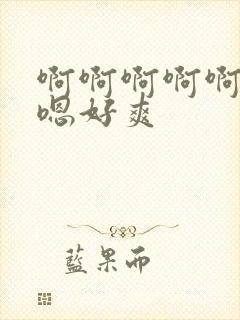 啊啊啊啊啊
嗯好爽
蓝果而